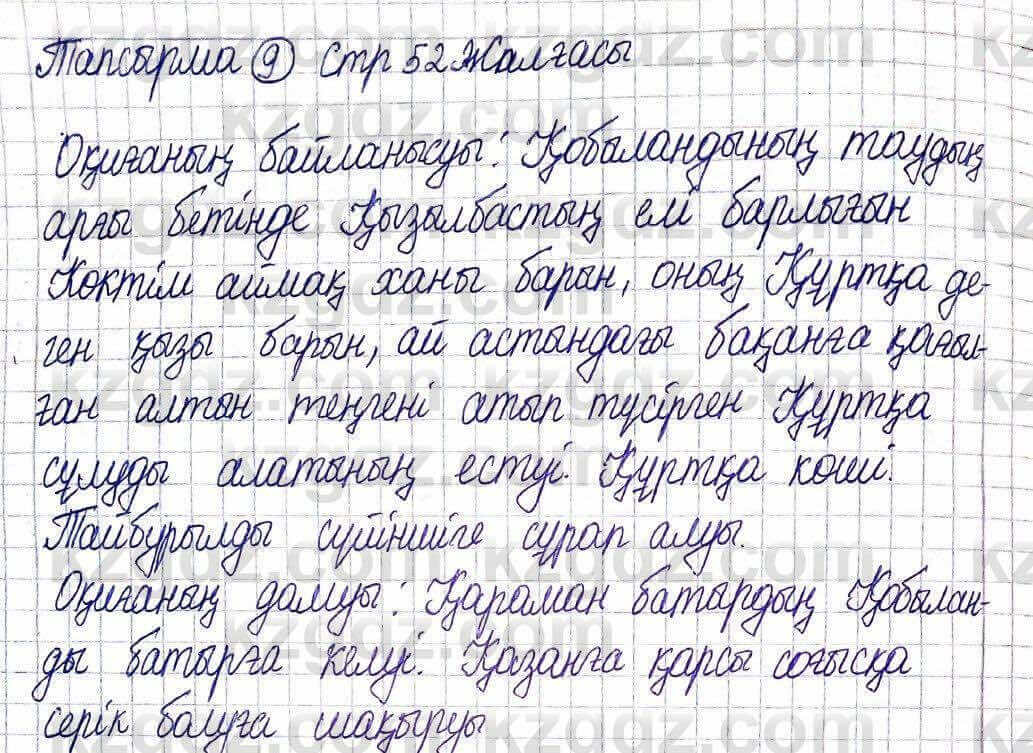 Тапсырма 9 стр 52 Жалғасы
Оқиғаның байланысуы: Қобаландының таудың
арғы бетінде Қызылбастың елі барлығын
Көктім аймақ ханы барын, оның Құртқа де-
ген қызы барын, ай астындағы бақанға қағыл-
ған алтын теңгені атып түсірген Құртқа
сұлуды алатының естуі. Құртқа көші.
Тайбурылды сүйіншіге сұрап алуы.
Оқиғаның дамуы: Қараман батырдың Қобылан-
ды батырға келуі. Қазанға қарсы соғысқа
серік болуға шақыруы
kzgdz.com